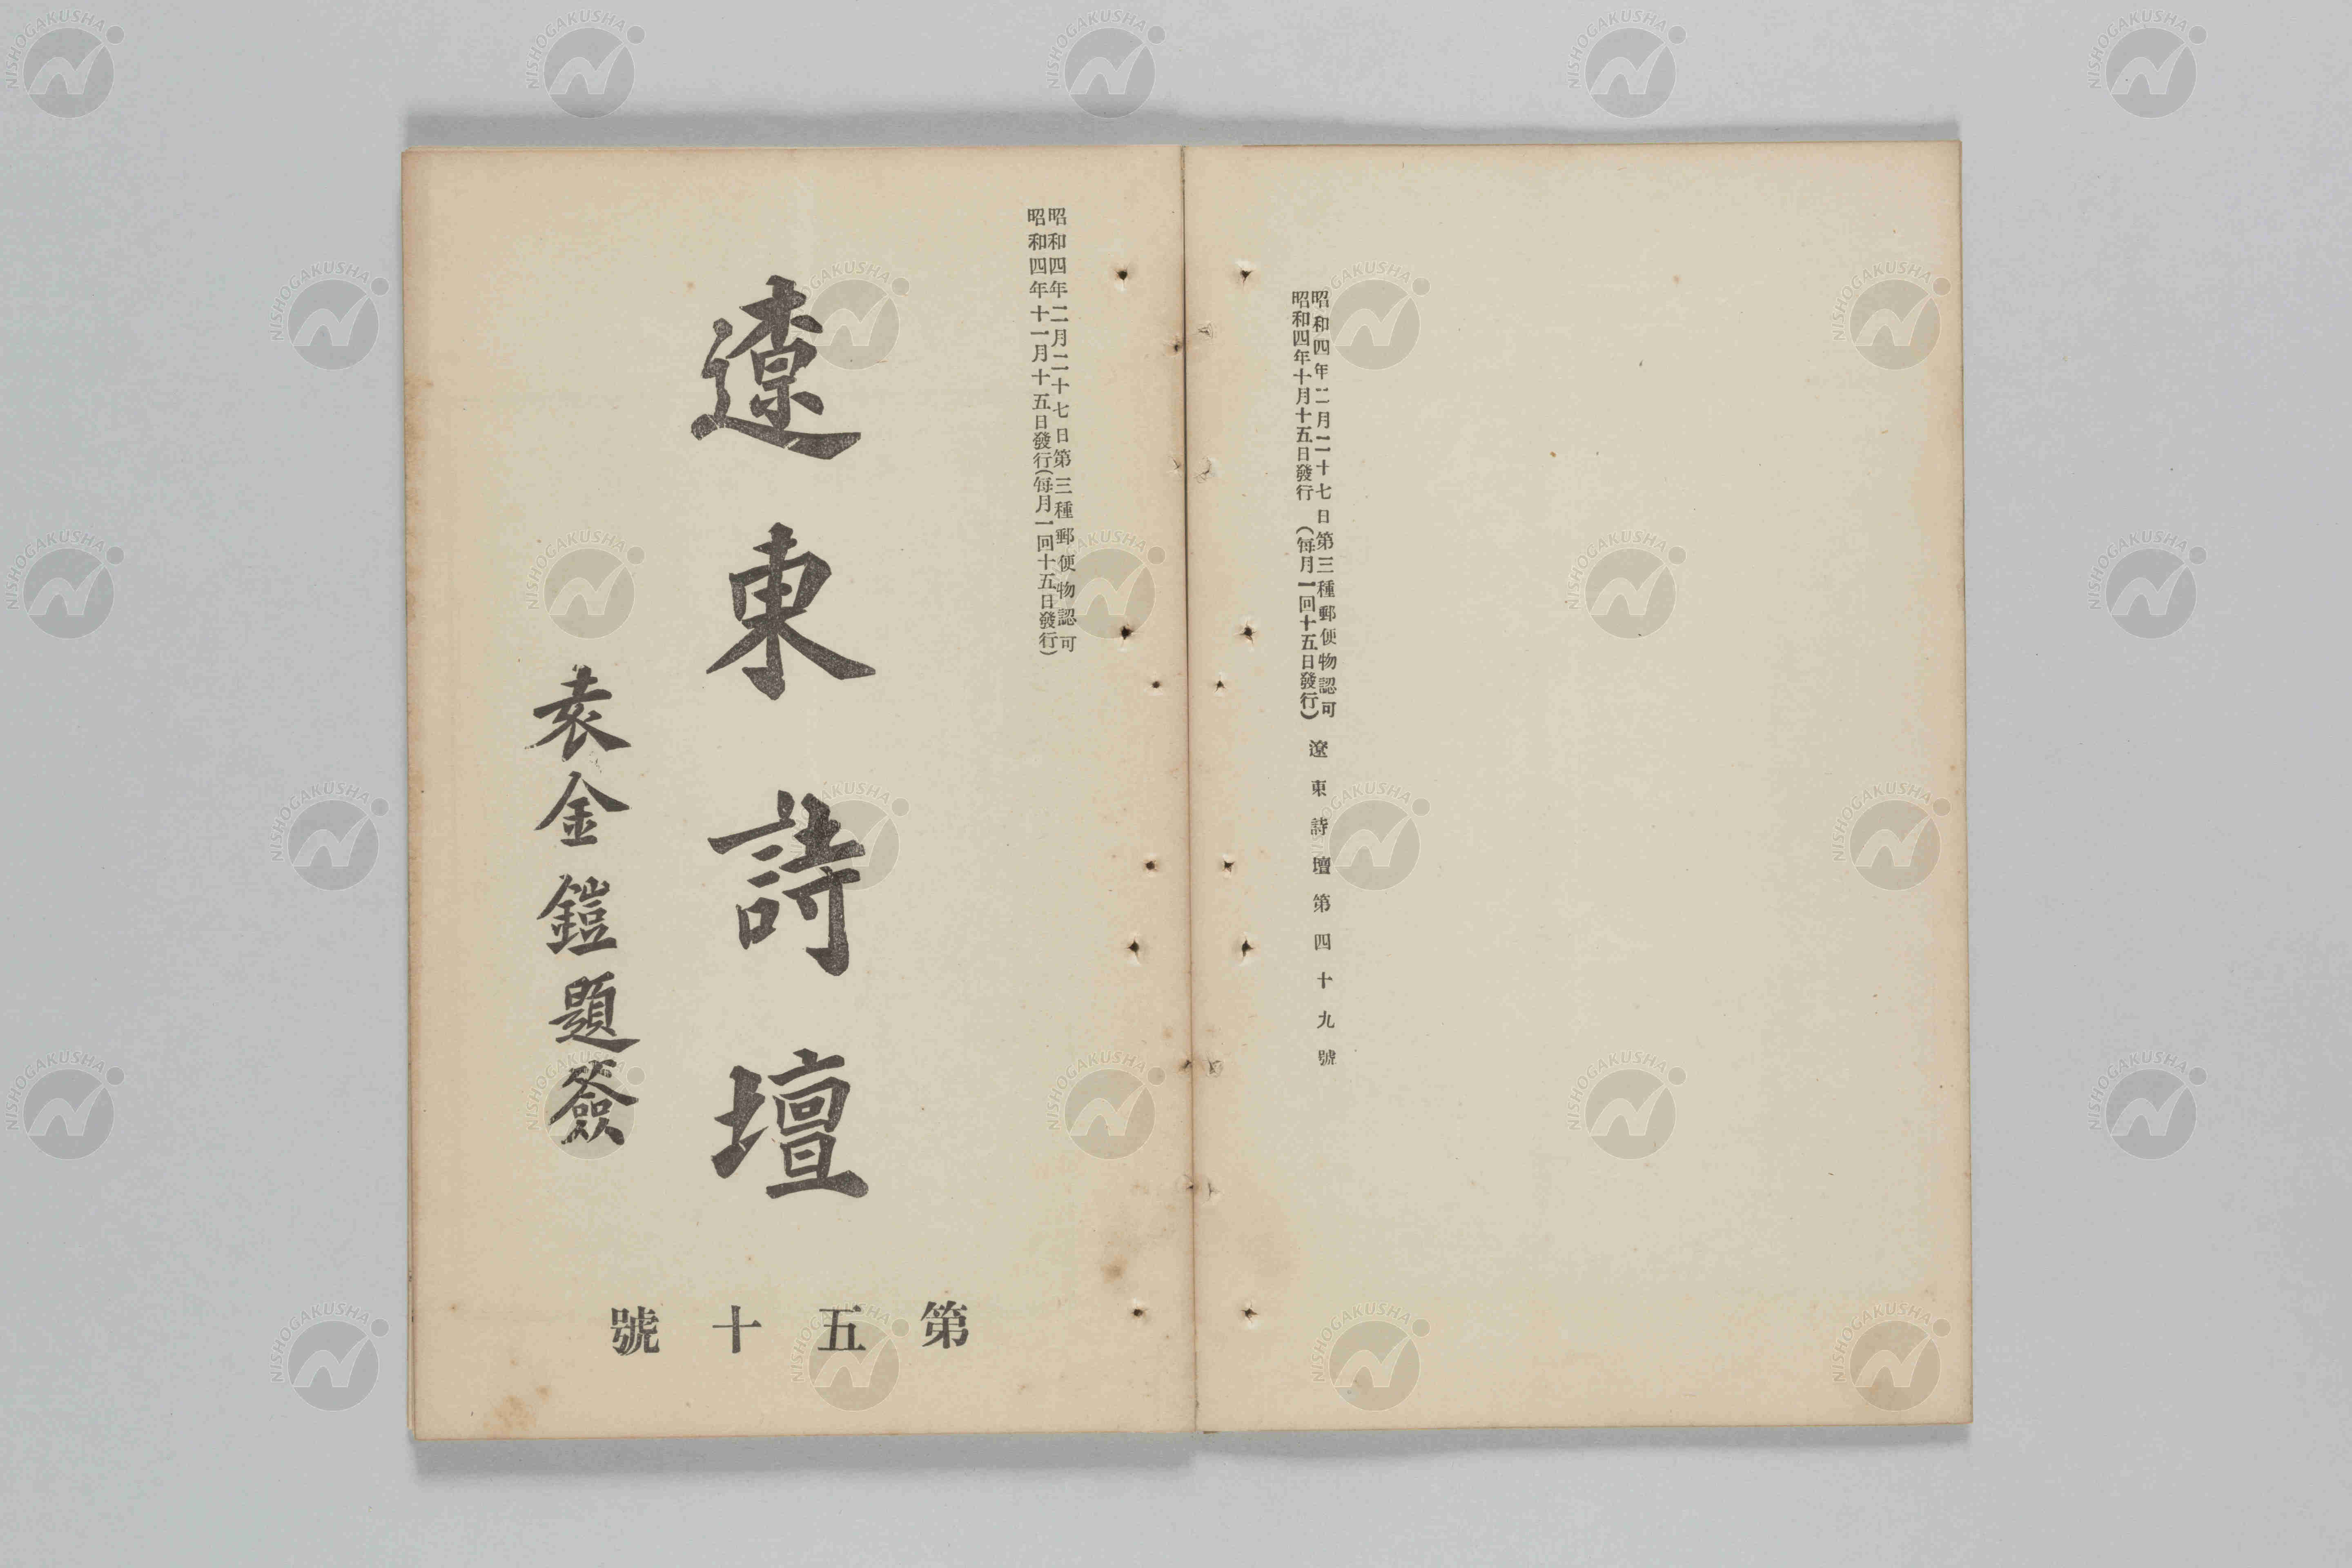 昭和四年二月二十七日第三種郵便物認可
昭和四年十月十五日發行（每月一回十五日發行）
遼東詩壇第四十九號
昭和四年二月二十七日第三種郵便物認可
昭和四年十一月十五日發行（每月一回十五日發行）
遼東詩壇
袁金鎧題簽
第五十號
NISHOGAKUSHA